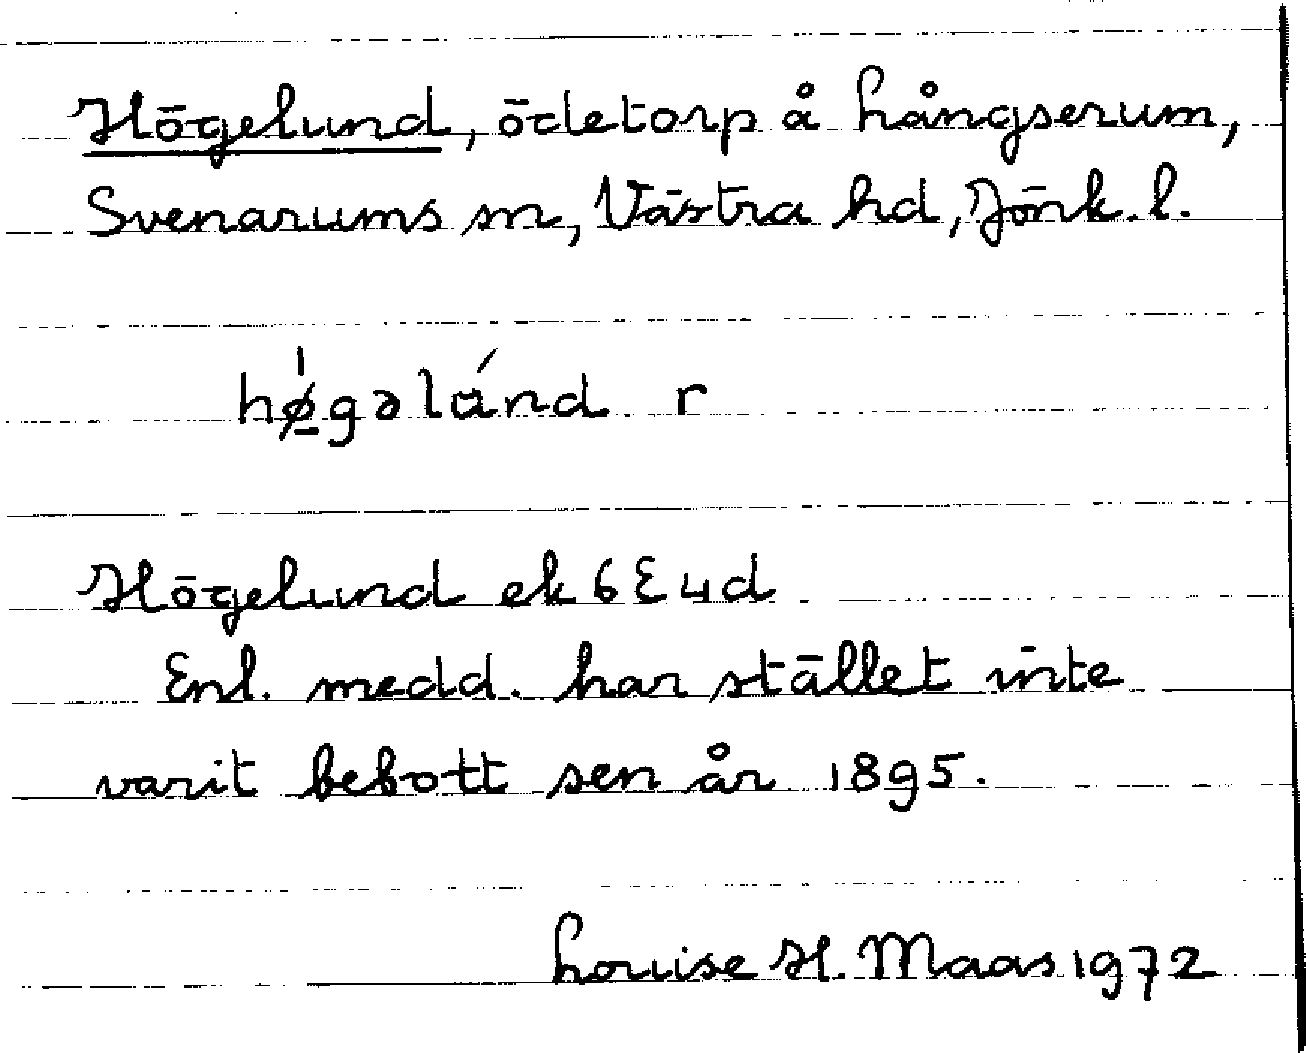 Högelund, ödetorp å Långserum,
Svenarums sn, Västra hd, Jönk. l.
hø̱̍gəlánd r
Högelund ek 6E4d
Enl. medd. har stället inte
varit bebott sen år 1895.
Louise H. Maas 1972